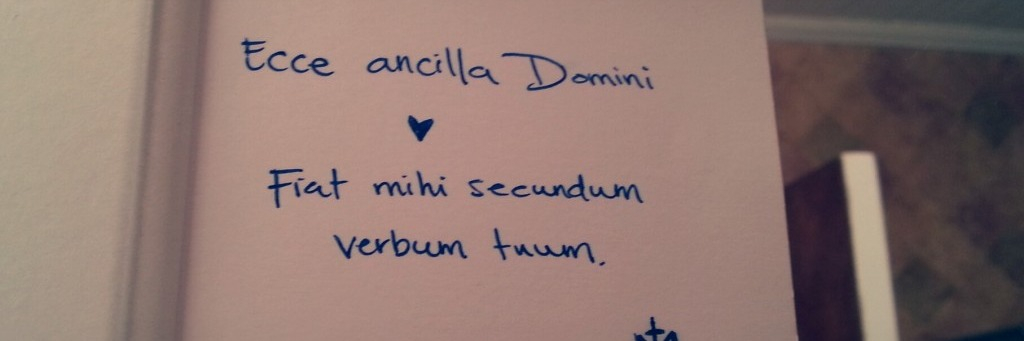 Ecce ancilla Domini
♥
Fiat mihi secundum
verbum tuum.